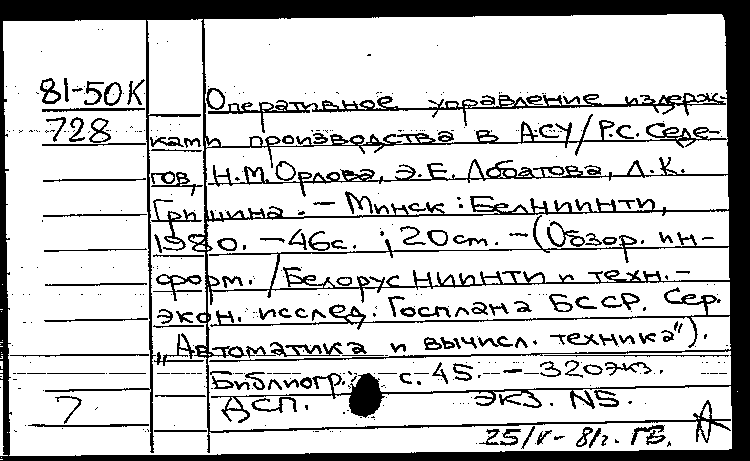 81-50К Оперативное управление издерж-
728 ками производства в АСУ/Р.С. Седе-
гов, Н.М. Орлова, Э.Е. Лобатова, Л.К.
Гришина. – Минск : БелНИИНТИ,
1980. – 46с. ; 20 см. – (Обзор. ин-
форм. / Белорус НИИНТИ и техн.-
экон. исслед. Госплана БССР. Сер.
„Автоматика и вычисл. техника").
Библиогр.: с. 45. – 320 экз.
7 ДСП. экз. N5.
25/V- 81г. ГБ.